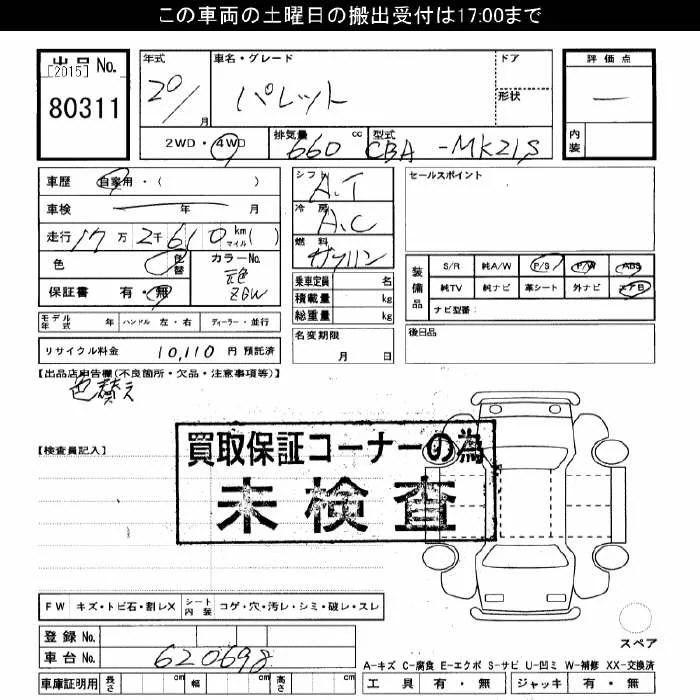 この車両の土曜日の搬出受付は17:00まで
出品 No.
[2015]
80311
年式 20/ 月
車名・グレード パレット
ドア
形状
評価点 ―
内装
2WD・4WD
排気量 660 cc
型式 CBA-MK21S
車歴 自家用・( )
車検 年 月
走行 17万2千610km マイル( )
色 色替
カラーNo. 元色 ZGW
保証書 有・無
シフト A.T
冷房 A.C
燃料 ガソリン
乗車定員 名
積載量 kg
総重量 kg
セールスポイント
装備品
S/R 純A/W P/S P/W ABS
純TV 純ナビ 革シート 外ナビ エアB
ナビ型番:
モデル年式 年 ハンドル 左・右 ディーラー・並行
名変期限 月 日
後日品
リサイクル料金 10,110 円 預託済
【出品店申告欄(不良箇所・欠品・注意事項等)】
色替え
【検査員記入】
買取保証コーナーの為
未検査
FW キズ・トビ石・割レX シート内装 コゲ・穴・汚レ・シミ・破レ・スレ
スペア
登録 No.
車台 No. 620698
A-キズ C-腐食 E-エクボ S-サビ U-凹ミ W-補修 XX-交換済
車庫証明用 長さ cm 幅 cm 高さ cm
工具 有・無 ジャッキ 有・無